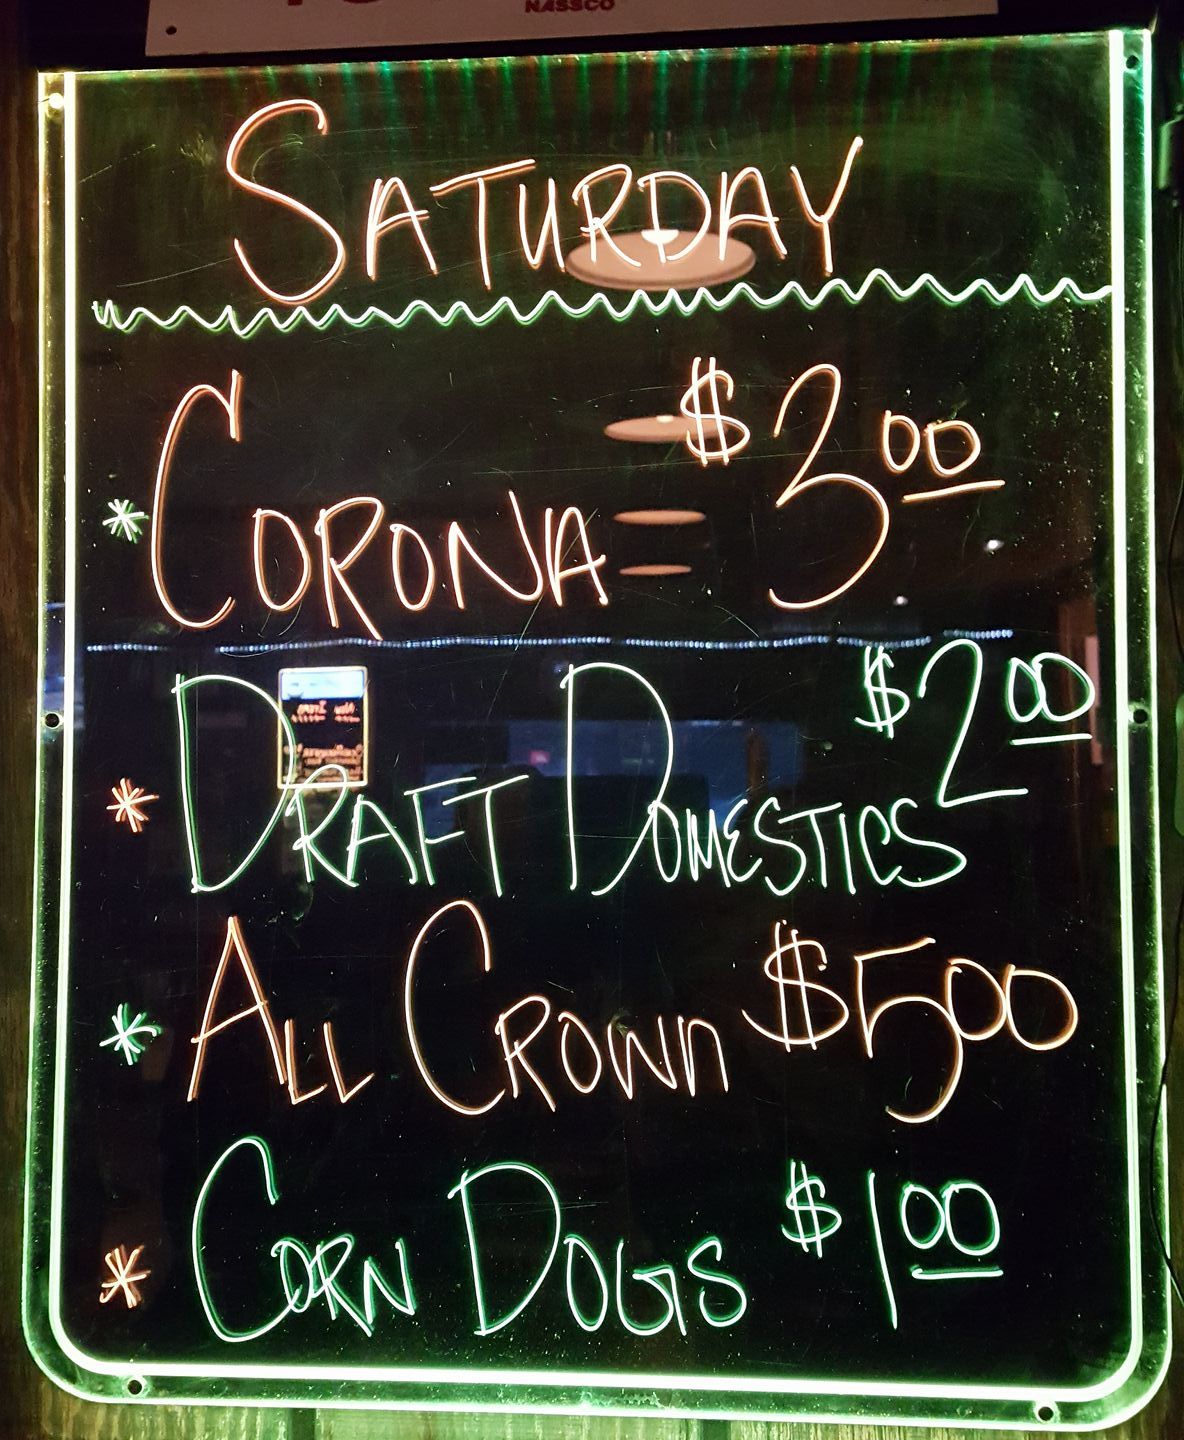 NASSCO
SATURDAY
* CORONA $3.00
* DRAFT DOMESTICS $2.00
* ALL CROWN $5.00
* CORN DOGS $1.00